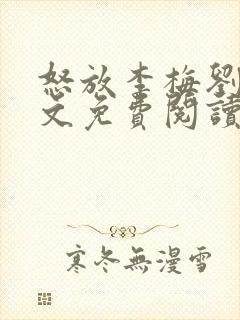 怒放李梅劉
文免費閱讀
寒冬無漫雪